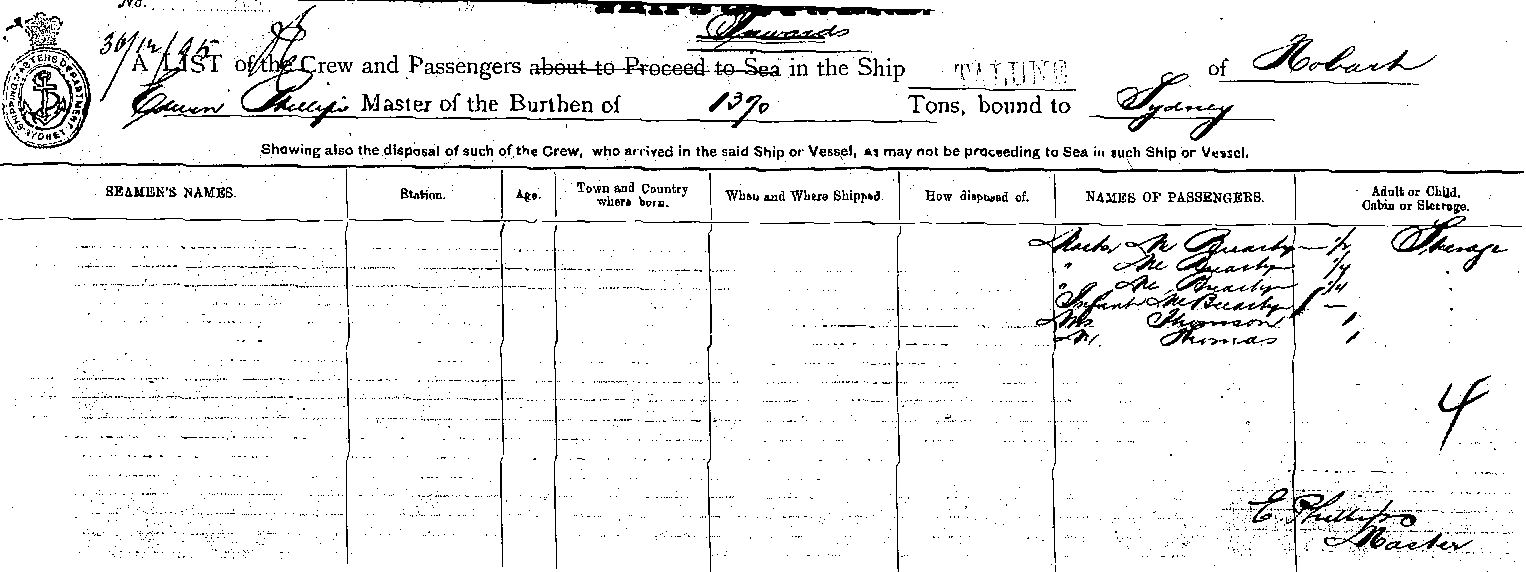 No.
Inwards
30/12/95
A LIST of the Crew and Passengers about to Proceed to Sea in the Ship TALUNE of Hobart
Edwin Phillips Master of the Burthen of 1370 Tons, bound to Sydney
Showing also the disposal of such of the Crew, who arrived in the said Ship or Vessel, as may not be proceeding to Sea in such Ship or Vessel.
SEAMEN'S NAMES. Station. Age. Town and Country where born. When and Where Shipped. How disposed of. NAMES OF PASSENGERS. Adult or Child, Cabin or Steerage.
Master Mc Brearty 1/2 Steerage
" Mc Brearty 1/4
" Mc Brearty 1/4
Infant McBrearty —
Mrs Thomson 1
Mr. Thomas 1
4
E Phillips
Master